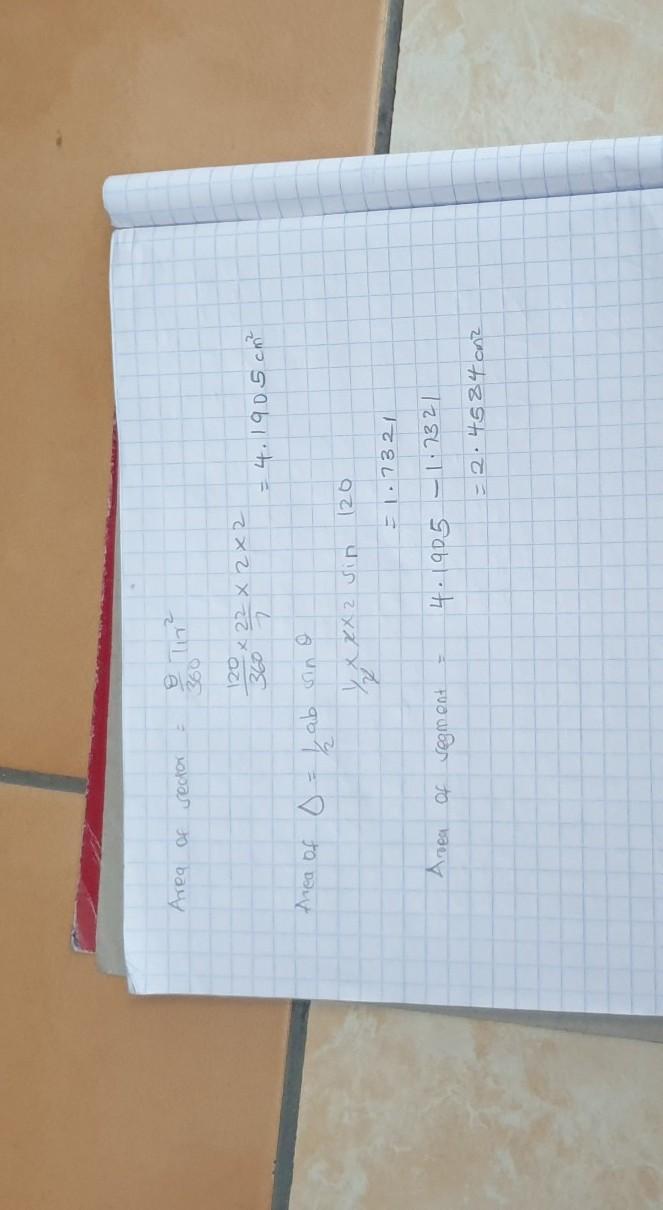 Area of sector = θ/360 πr²
120/360 × 22/7 × 2 × 2
= 4.1905 cm²
Area of Δ = 1/2 ab sin θ
1/2 × 2 × 2 sin 120
= 1.7321
Area of segment = 4.1905 - 1.7321
= 2.4584 cm²